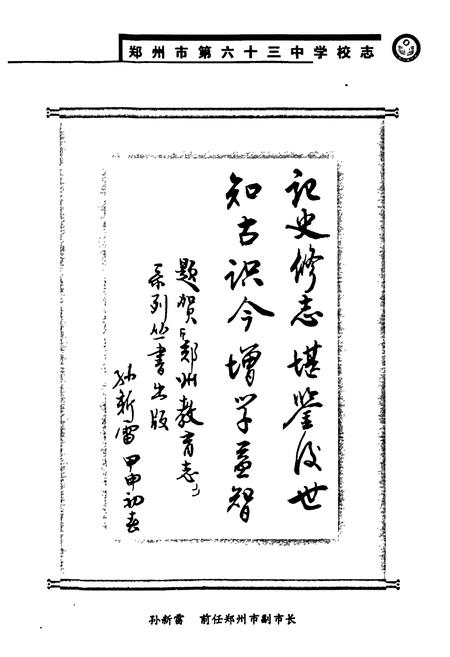 郑州市第六十三中学校志
记史修志堪鉴后世
知古识今增学益智
题贺《郑州教育志》
系列丛书出版
孙新雷 甲申初春
孙新雷 前任郑州市副市长